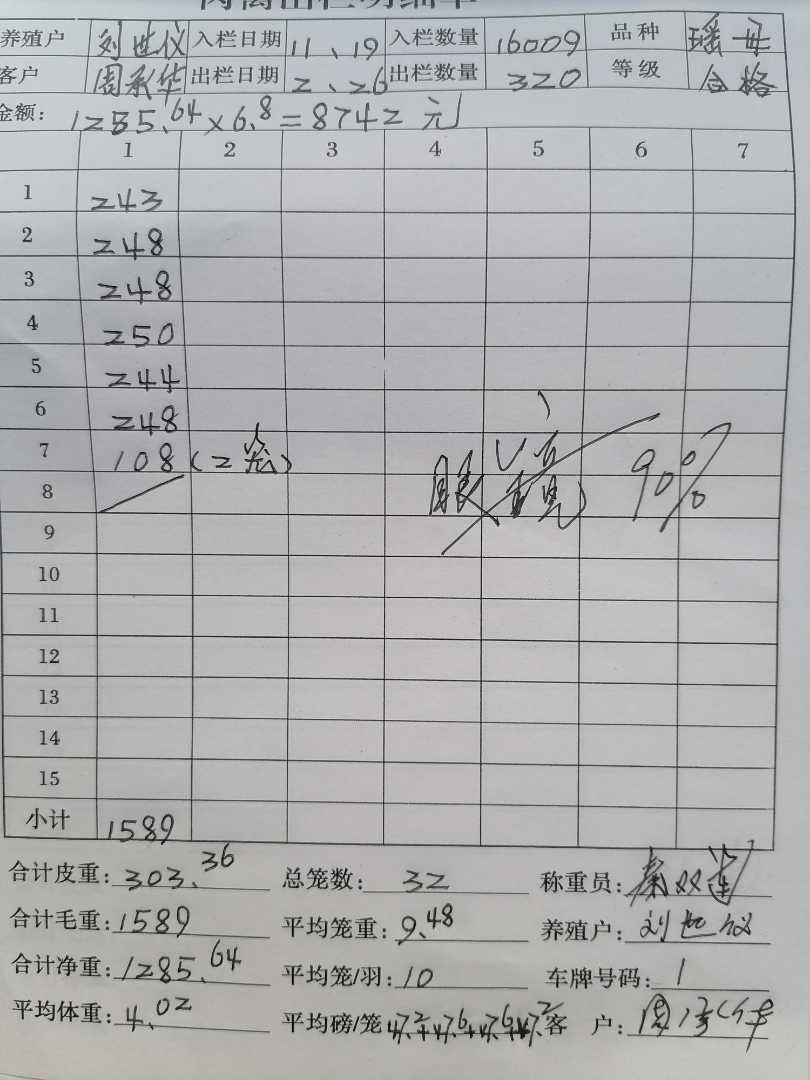 养殖户 刘世仪 入栏日期 11、19 入栏数量 16009 品种 瑶母
客户 周承华 出栏日期 2、26 出栏数量 320 等级 合格
金额: 1285.64×6.8=8742元
1 2 3 4 5 6 7
1 243
2 248
3 248
4 250
5 244
6 248
7 108 (2笼) 90%
8
9
10
11
12
13
14
15
小计 1589
合计皮重: 303.36 总笼数: 32 称重员: 秦双莲
合计毛重: 1589 平均笼重: 9.48 养殖户: 刘世仪
合计净重: 1285.64 平均笼/羽: 10 车牌号码: 1
平均体重: 4.02 平均磅/笼 客 户: